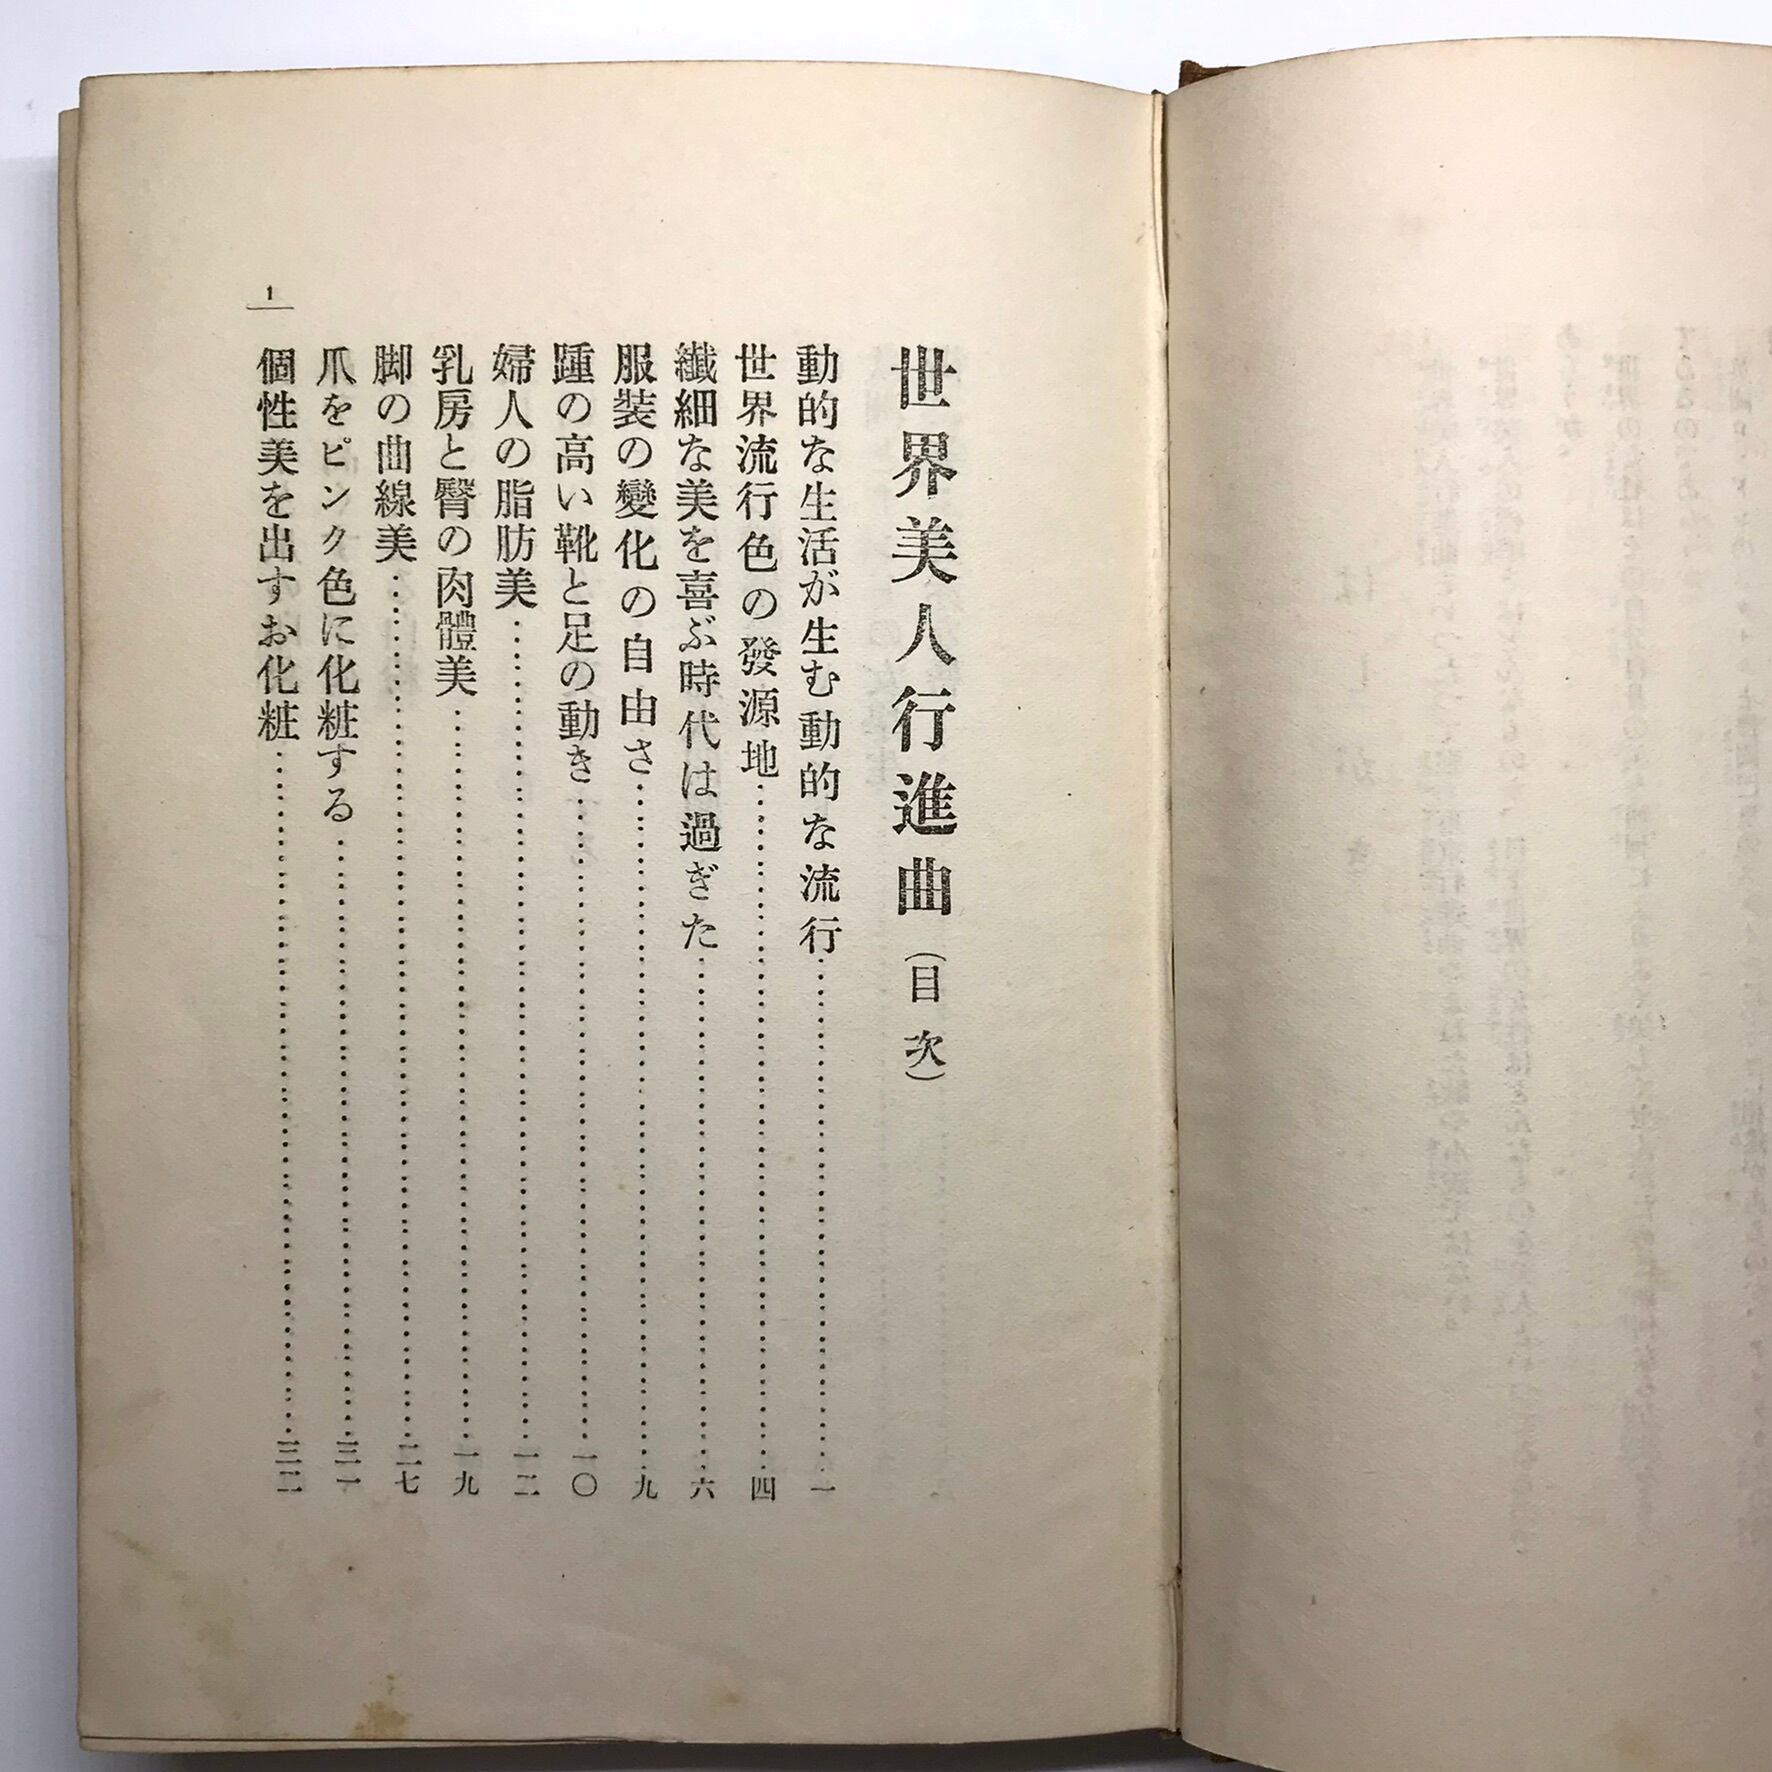 世界美人行進曲(目次)
動的な生活が生む動的な流行……一
世界流行色の發源地……四
纖細な美を喜ぶ時代は過ぎた……六
服裝の變化の自由さ……九
踵の高い靴と足の動き……一〇
婦人の脂肪美……一二
乳房と臀の肉體美……一九
脚の曲線美……二七
爪をピンク色に化粧する……三一
個性美を出すお化粧……三二
1